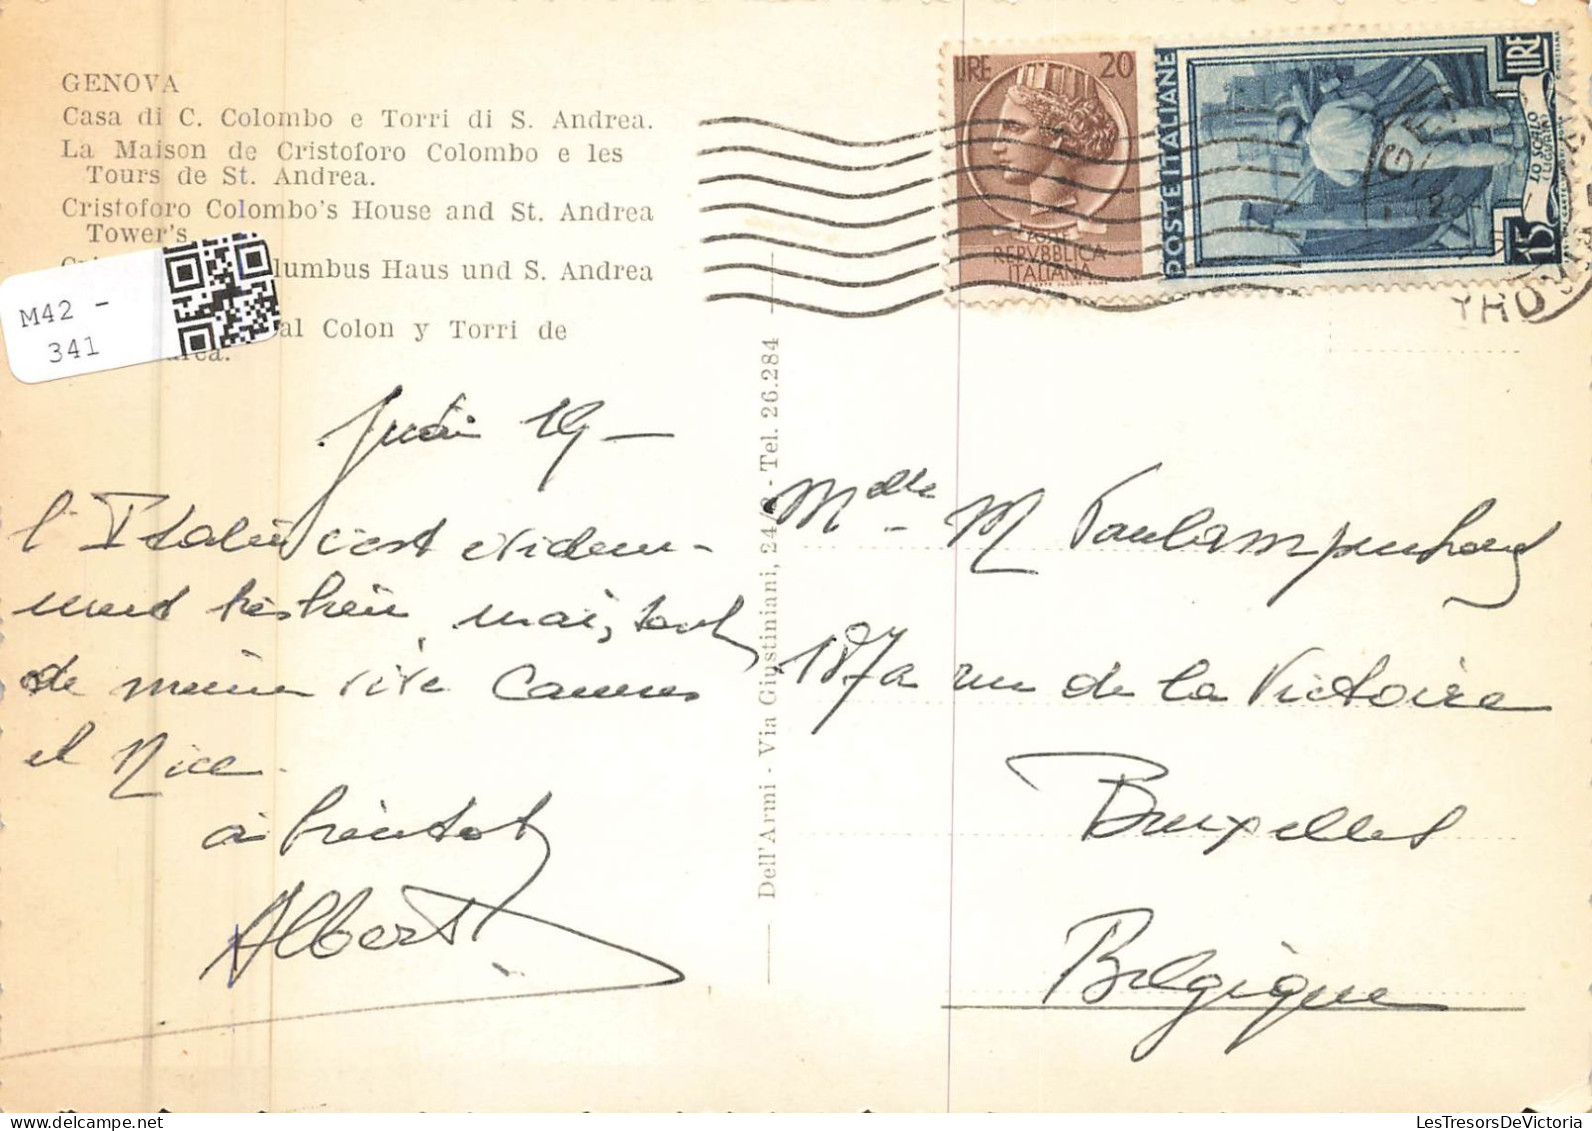 GENOVA
Casa di C. Colombo e Torri di S. Andrea.
La Maison de Cristoforo Colombo e les
Tours de St. Andrea.
Cristoforo Colombo's House and St. Andrea
Tower's
lumbus Haus und S. Andrea
al Colon y Torri de
M42 -
341
LIRE 20
REPVBBLICA
ITALIANA
POSTE ITALIANE
LIRE
LO SCALO
LIGURIA
15
Dell'Armi - Via Giustiniani, 24 - Tel. 26.284
19 -
l'Italie c'est evidem-
ment très bien mais, tout
de même vive Cannes
et Nice.
à bientot
Albert
Mdlle M
187a rue de la Victoire
Bruxelles
Belgique
LesTresorsDeVictoria